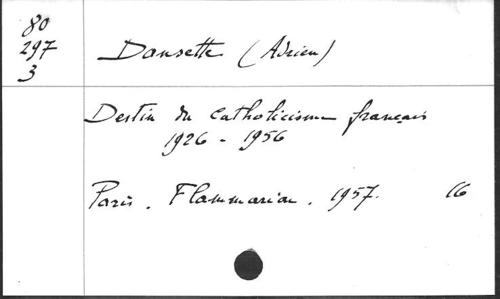 80
297
3
Dansette (Adrien)
Destin du catholicisme français
1926 - 1956
Paris. Flammarion. 1957. 16